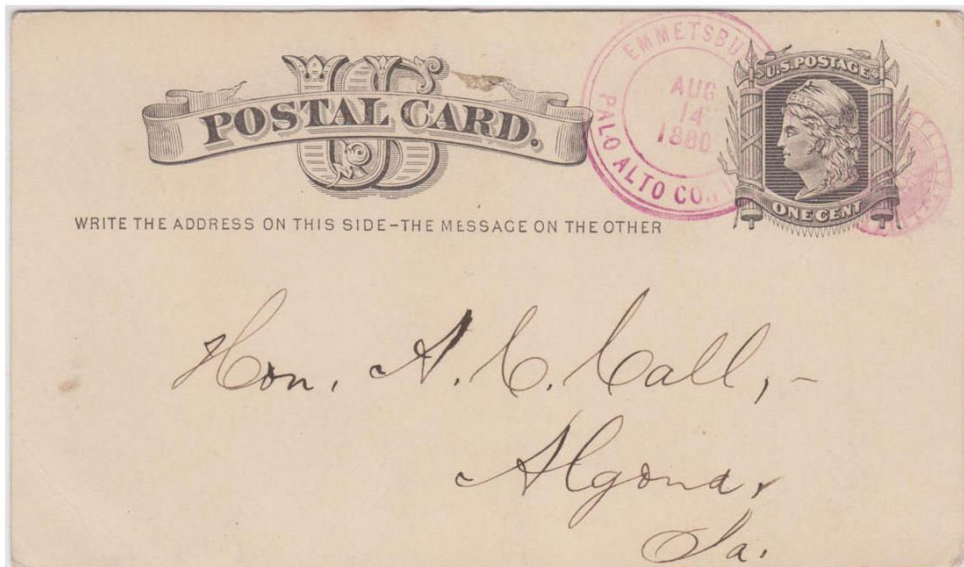 US
POSTAL CARD.
EMMETSBU
AUG
14
1880
PALO ALTO CO
U.S. POSTAGE
ONE CENT
WRITE THE ADDRESS ON THIS SIDE-THE MESSAGE ON THE OTHER
Hon. A. C. Call,-
Algona,
Ia.